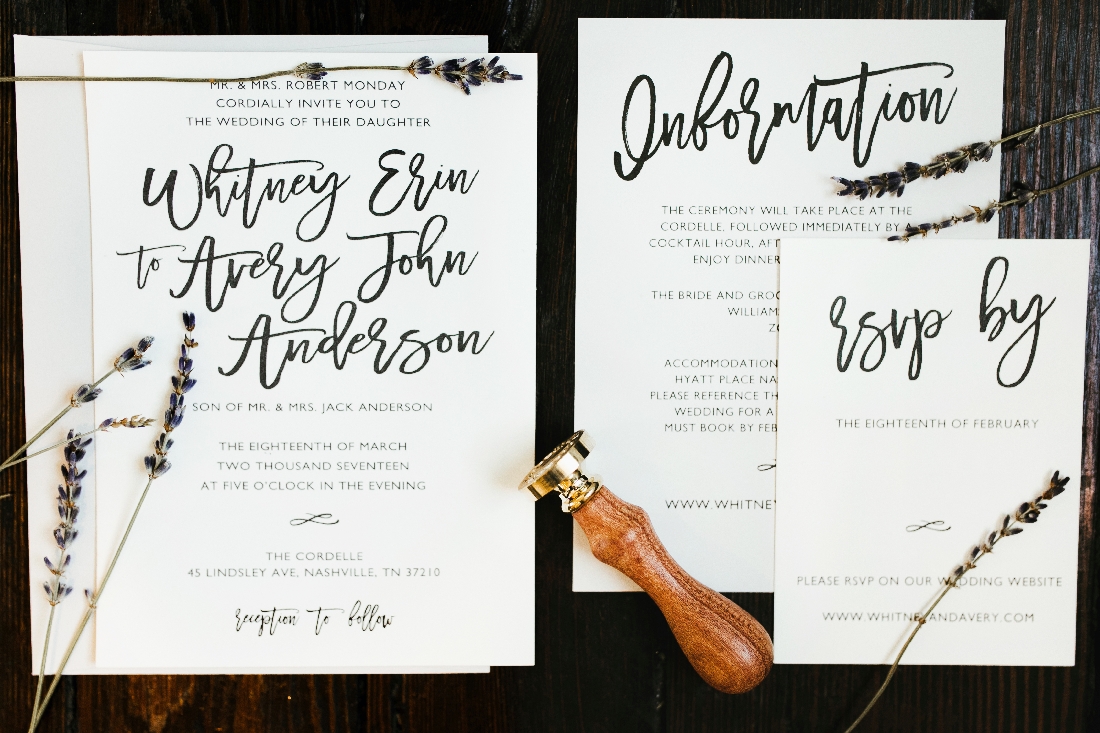 MR. & MRS. ROBERT MONDAY
CORDIALLY INVITE YOU TO
THE WEDDING OF THEIR DAUGHTER
Whitney Erin
to Avery John
Anderson
SON OF MR. & MRS. JACK ANDERSON
THE EIGHTEENTH OF MARCH
TWO THOUSAND SEVENTEEN
AT FIVE O'CLOCK IN THE EVENING
THE CORDELLE
45 LINDSLEY AVE, NASHVILLE, TN 37210
reception to follow
Information
THE CEREMONY WILL TAKE PLACE AT THE
CORDELLE, FOLLOWED IMMEDIATELY BY A
COCKTAIL HOUR,
ENJOY DINNER
THE BRIDE AND
ACCOMMODATION
HYATT PLACE
PLEASE REFERENCE
WEDDING FOR A
MUST BOOK BY
rsvp by
THE EIGHTEENTH OF FEBRUARY
PLEASE RSVP ON OUR WEDDING WEBSITE
WWW.WHITNEYANDAVERY.COM